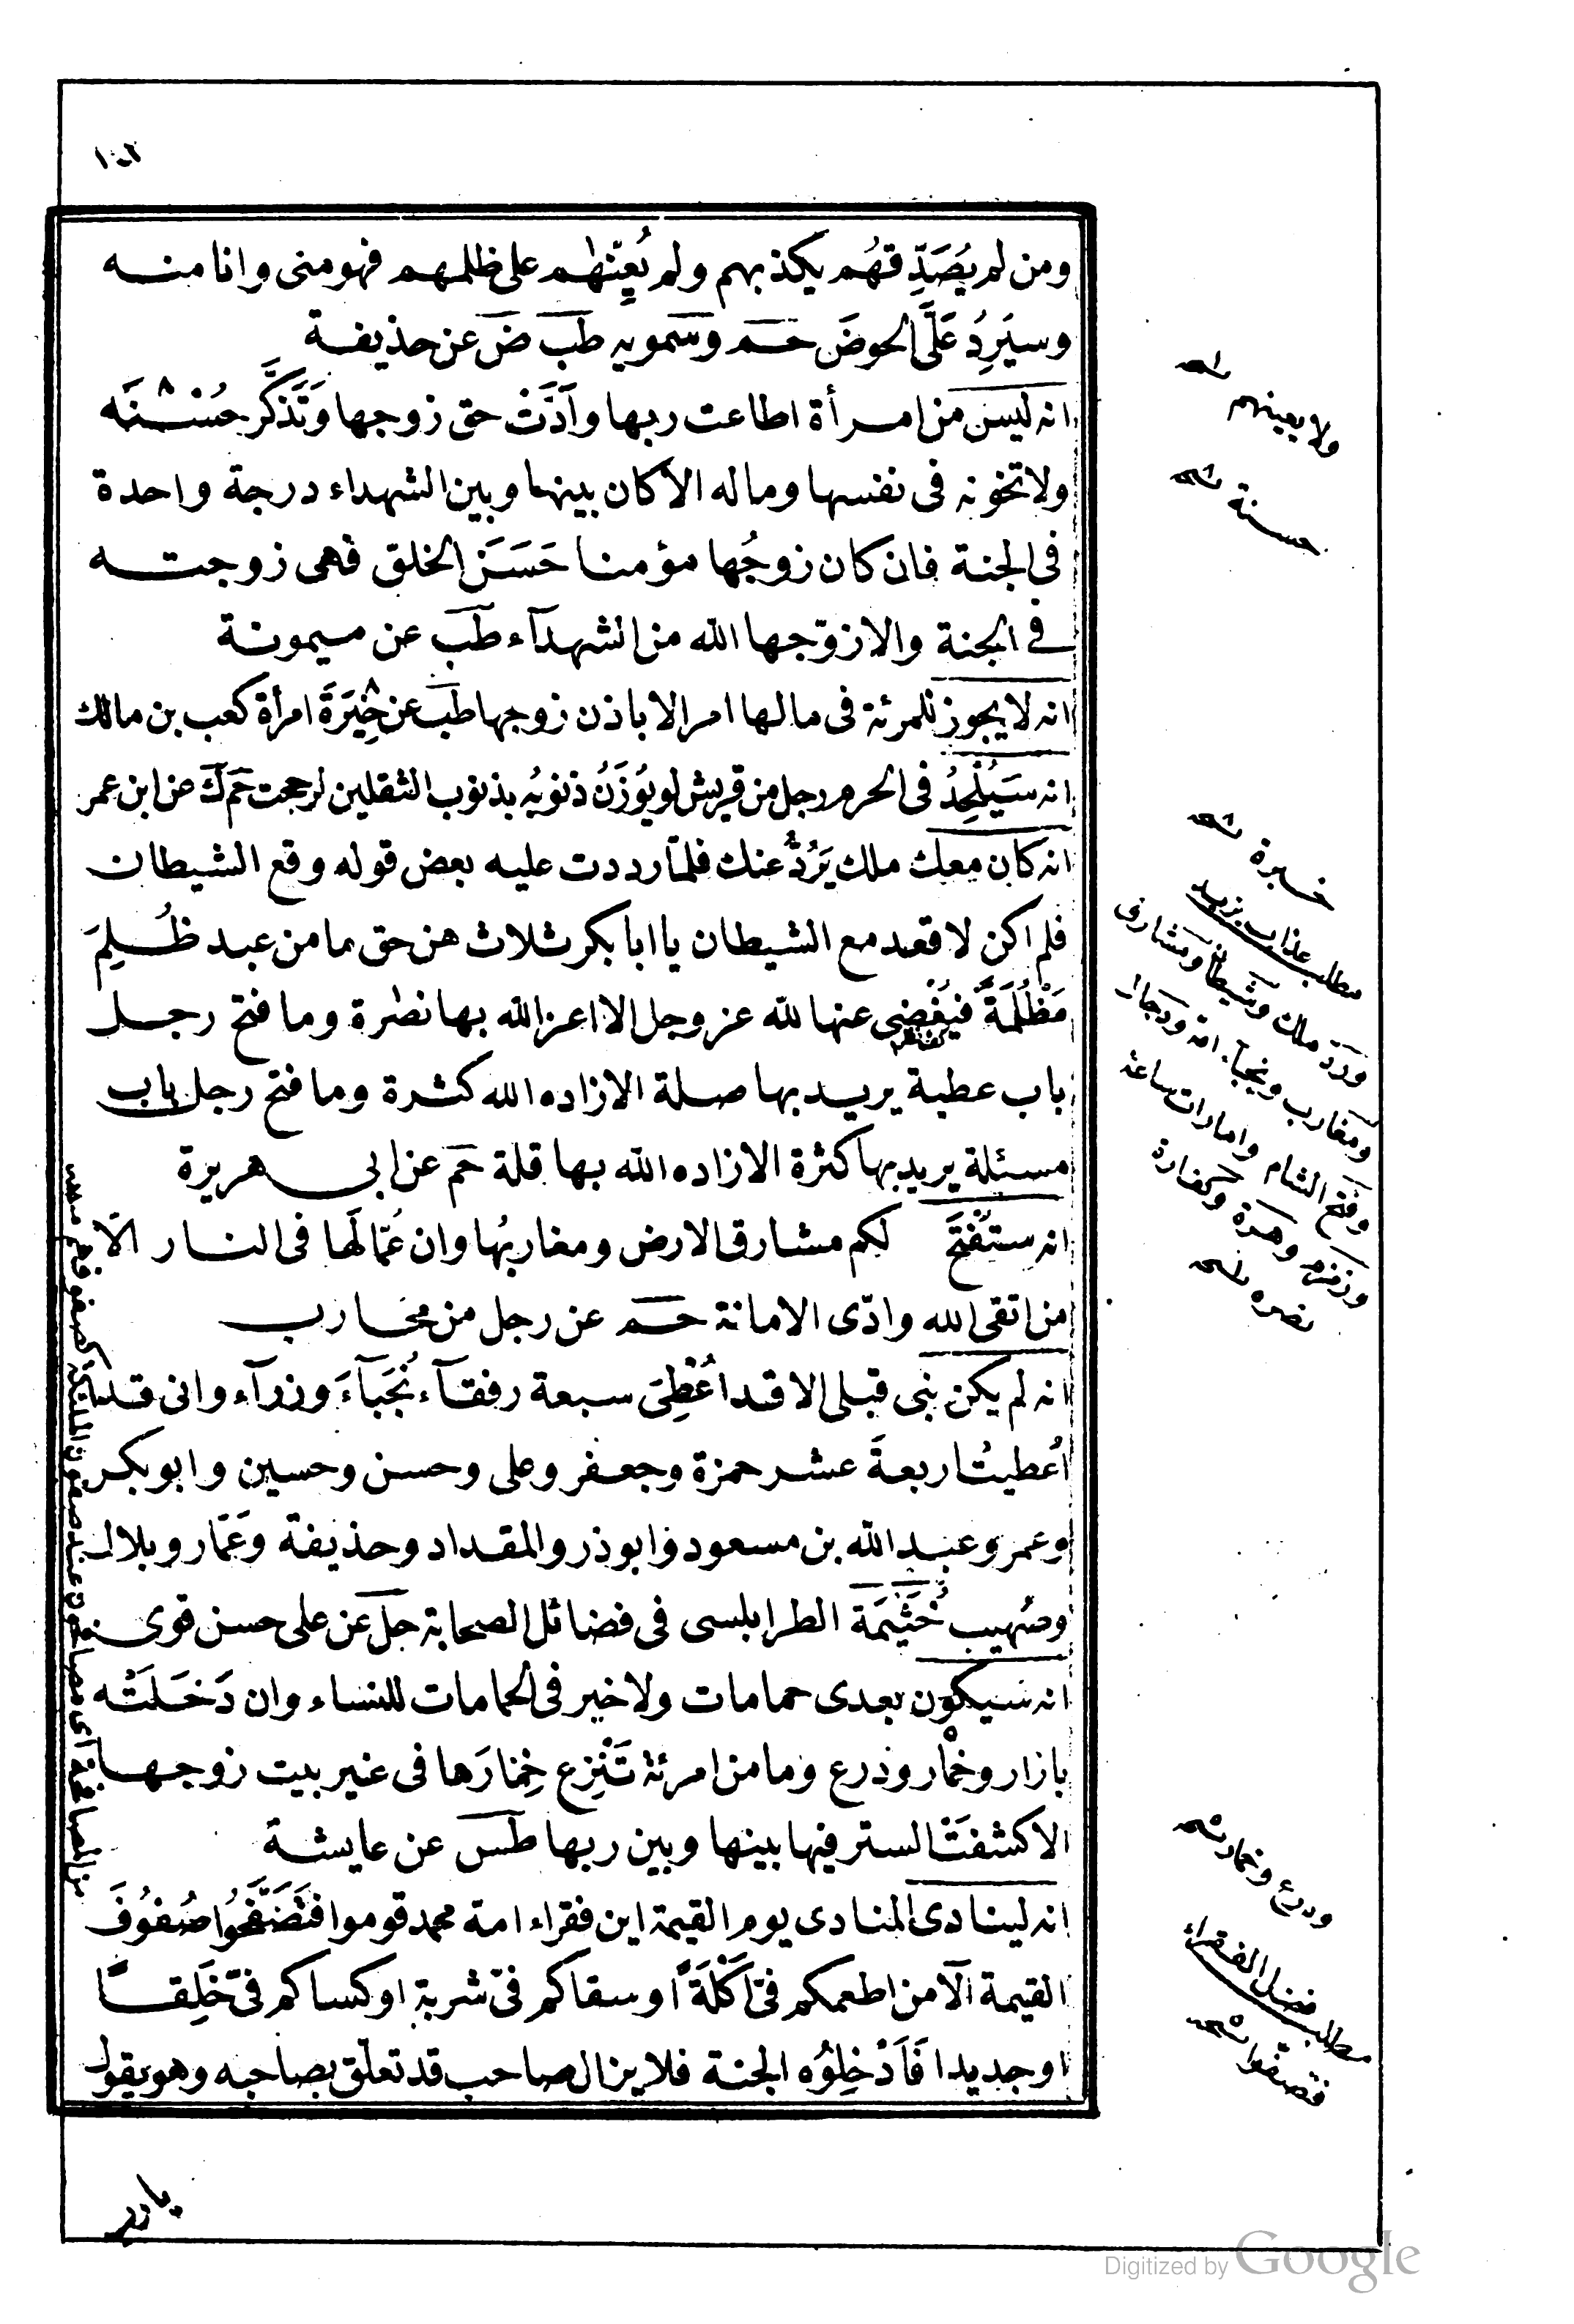 ١٠٢
ومن لم يُصَدِّقهُم بكذبهم ولم يُعِنْهم على ظلمهم فهو منى وانا منه
وسيَرِدُ عَلَّى الحوضَ حَم وسَمويه طَبَ ضَ عن حذيفة
انه ليس من امرأة اطاعت ربها وآدَّتْ حق زوجها وتَّذَكَّر حُسْنَه
ولا تخونه فى نفسها وماله الا كان بينها وبين الشهداء درجة واحدة
فى الجنة فان كان زوجُها مؤمنا حَسَنَ الخلق فهى زوجته
فى الجنة والا زوّجها الله من الشهدآء طَبَ عن ميمونة
انه لا يجوز للمرئة فى مالها امر الا باذن زوجها طَبَ عن خِيَرَةَ امرأة كعب بن مالك
انه سَيُلْحِدُ فى الحرم رجل من قريش لو يُوْزَنُ ذنوبُه بذنوب الثقلين لرجحت حَم كَ عن ابن عمر
انه كان معك ملك يَرُدُّ عنك فلمّا رددت عليه بعض قوله وقع الشيطان
فلم اكن لاقعد مع الشيطان يا ابا بكر ثلاث هن حق ما من عبد ظُلِمَ
مَظْلَمَةً فيُغْضِى عنها لله عز وجل الا اعز الله بها نصْرة وما فتح رجل
باب عطية يريد بها صلة الا زاده الله كثرة وما فتح رجل باب
مسئلة يريد بها كثرة الا زاده الله بها قلة حَم عن ابى هريرة
انه ستُفْتَحُ لكم مشارق الارض ومغاربُها وان عُمّالَها فى النار الّا
من اتقى الله وادّى الامانة حَم عن رجل من محارب
انه لم يكن نبى قبلى الا قد اُعْطِىَ سبعة رفقآء نُجَبآءَ وزرآء وانى قد
اُعطيتُ اربعةَ عشر حمزة وجعفر وعلى وحسن وحسين وابو بكر
وعمر وعبد الله بن مسعود وابو ذر والمقداد وحذيفة وعَمّار وبلال
وصُهيب خَُثَيْمَة الطرابلسى فى فضائل الصحابة حل عن على حسن قوى
انه سيكون بعدى حمامات ولا خير فى الحمامات للنساء وان دَخَلَتْه
بازار وخمار ودرع وما من امرئة تَنْزِع خِمَارَها فى غير بيت زوجها
الا كشفَتْ الستر فيها بينها وبين ربها طَسَ عن عايشة
انه لينادى المنادى يوم القيمة اين فقراء امة محمد قوموا فتَصَفَّحُوا صُفُوفَ
القيمة اَلَا من اطعمكم فىّ اَكْلَةً او سقاكم فىّ شربة او كساكم فىّ خَلِقًا
او جديدا فَاَدْخِلُوْه الجنة فلا يزال صاحب قد تعلّق بصاحبه وهو يقول
يا رب
ولا يعينهم نسخه
حسنة نسخه
خيرة نسخه
مطلب عذاب يزيد
وردّ ملك وشيطان ومشارق
ومغارب ونجبآء امة ودجال
وفتح الشام وامارات ساعة
وزمزم وهرة وكفارة
نصره نسخه
ودرع وخمار نسخه
مطلب فضل الفقراء
فتصفّوا نسخه